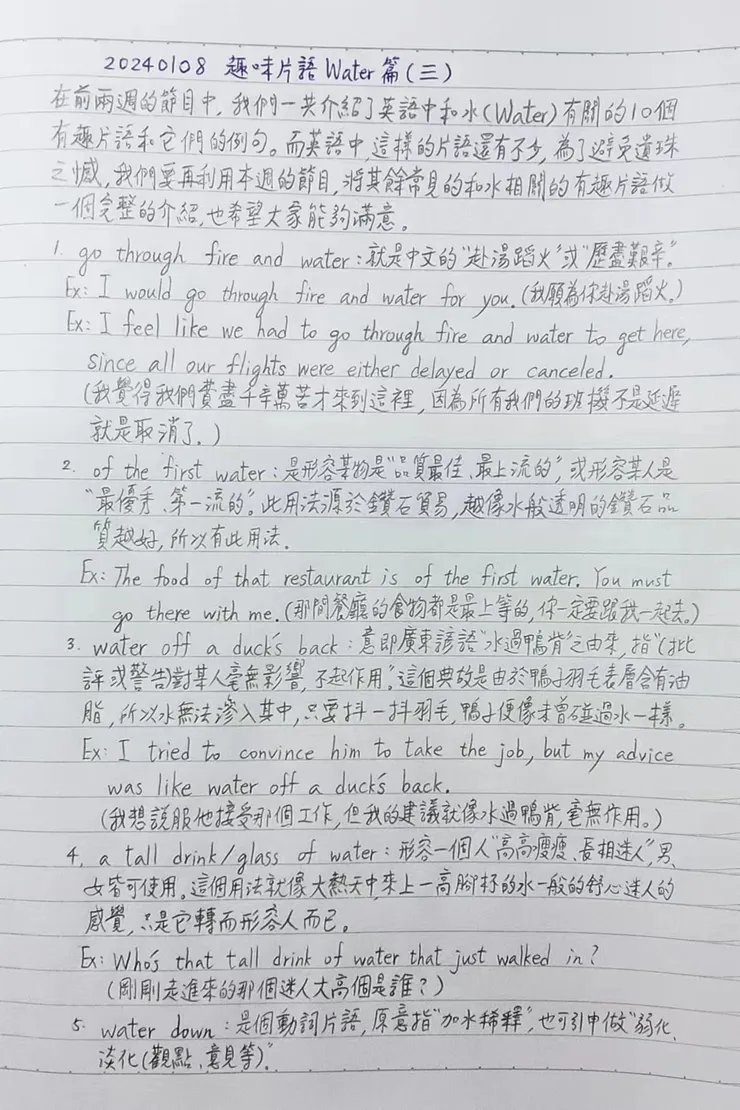 20240108 趣味片語 Water 篇(三)
在前兩週的節目中,我們一共介紹了英語中和水(Water)有關的10個
有趣片語和它們的例句。而英語中,這樣的片語還有不少,為了避免遺珠
之憾,我們要再利用本週的節目,將其餘常見的和水相關的有趣片語做
一個完整的介紹,也希望大家能夠滿意。
1. go through fire and water:就是中文的"赴湯蹈火"或"歷盡艱辛"。
Ex: I would go through fire and water for you.(我願為你赴湯蹈火。)
Ex: I feel like we had to go through fire and water to get here,
since all our flights were either delayed or canceled.
(我覺得我們費盡千辛萬苦才來到這裡,因為所有我們的班機不是延遲
就是取消了。)
2. of the first water:是形容某物是"品質最佳、最上流的",或形容某人是
"最優秀、第一流的"。此用法源於鑽石貿易,越像水般透明的鑽石品
質越好,所以有此用法。
Ex: The food of that restaurant is of the first water. You must
go there with me.(那間餐廳的食物都是最上等的,你一定要跟我一起去。)
3. water off a duck's back:意即廣東諺語"水過鴨背"之由來,指"(批
評或警告)對某人毫無影響,不起作用。"這個典故是由於鴨子羽毛表層含有油
脂,所以水無法滲入其中,只要抖一抖羽毛,鴨子便像未曾碰過水一樣。
Ex: I tried to convince him to take the job, but my advice
was like water off a duck's back.
(我想說服他接受那個工作,但我的建議就像水過鴨背,毫無作用。)
4. a tall drink/glass of water:形容一個人"高高瘦瘦、長相迷人",男、
女皆可使用。這個用法就像大熱天中,來上一高腳杯的水一般的舒心迷人的
感覺,只是它轉而形容人而已。
Ex: Who's that tall drink of water that just walked in?
(剛剛走進來的那個迷人大高個是誰?)
5. water down:是個動詞片語,原意指"加水稀釋",也可引申做"弱化、
淡化(觀點、意見等)"。